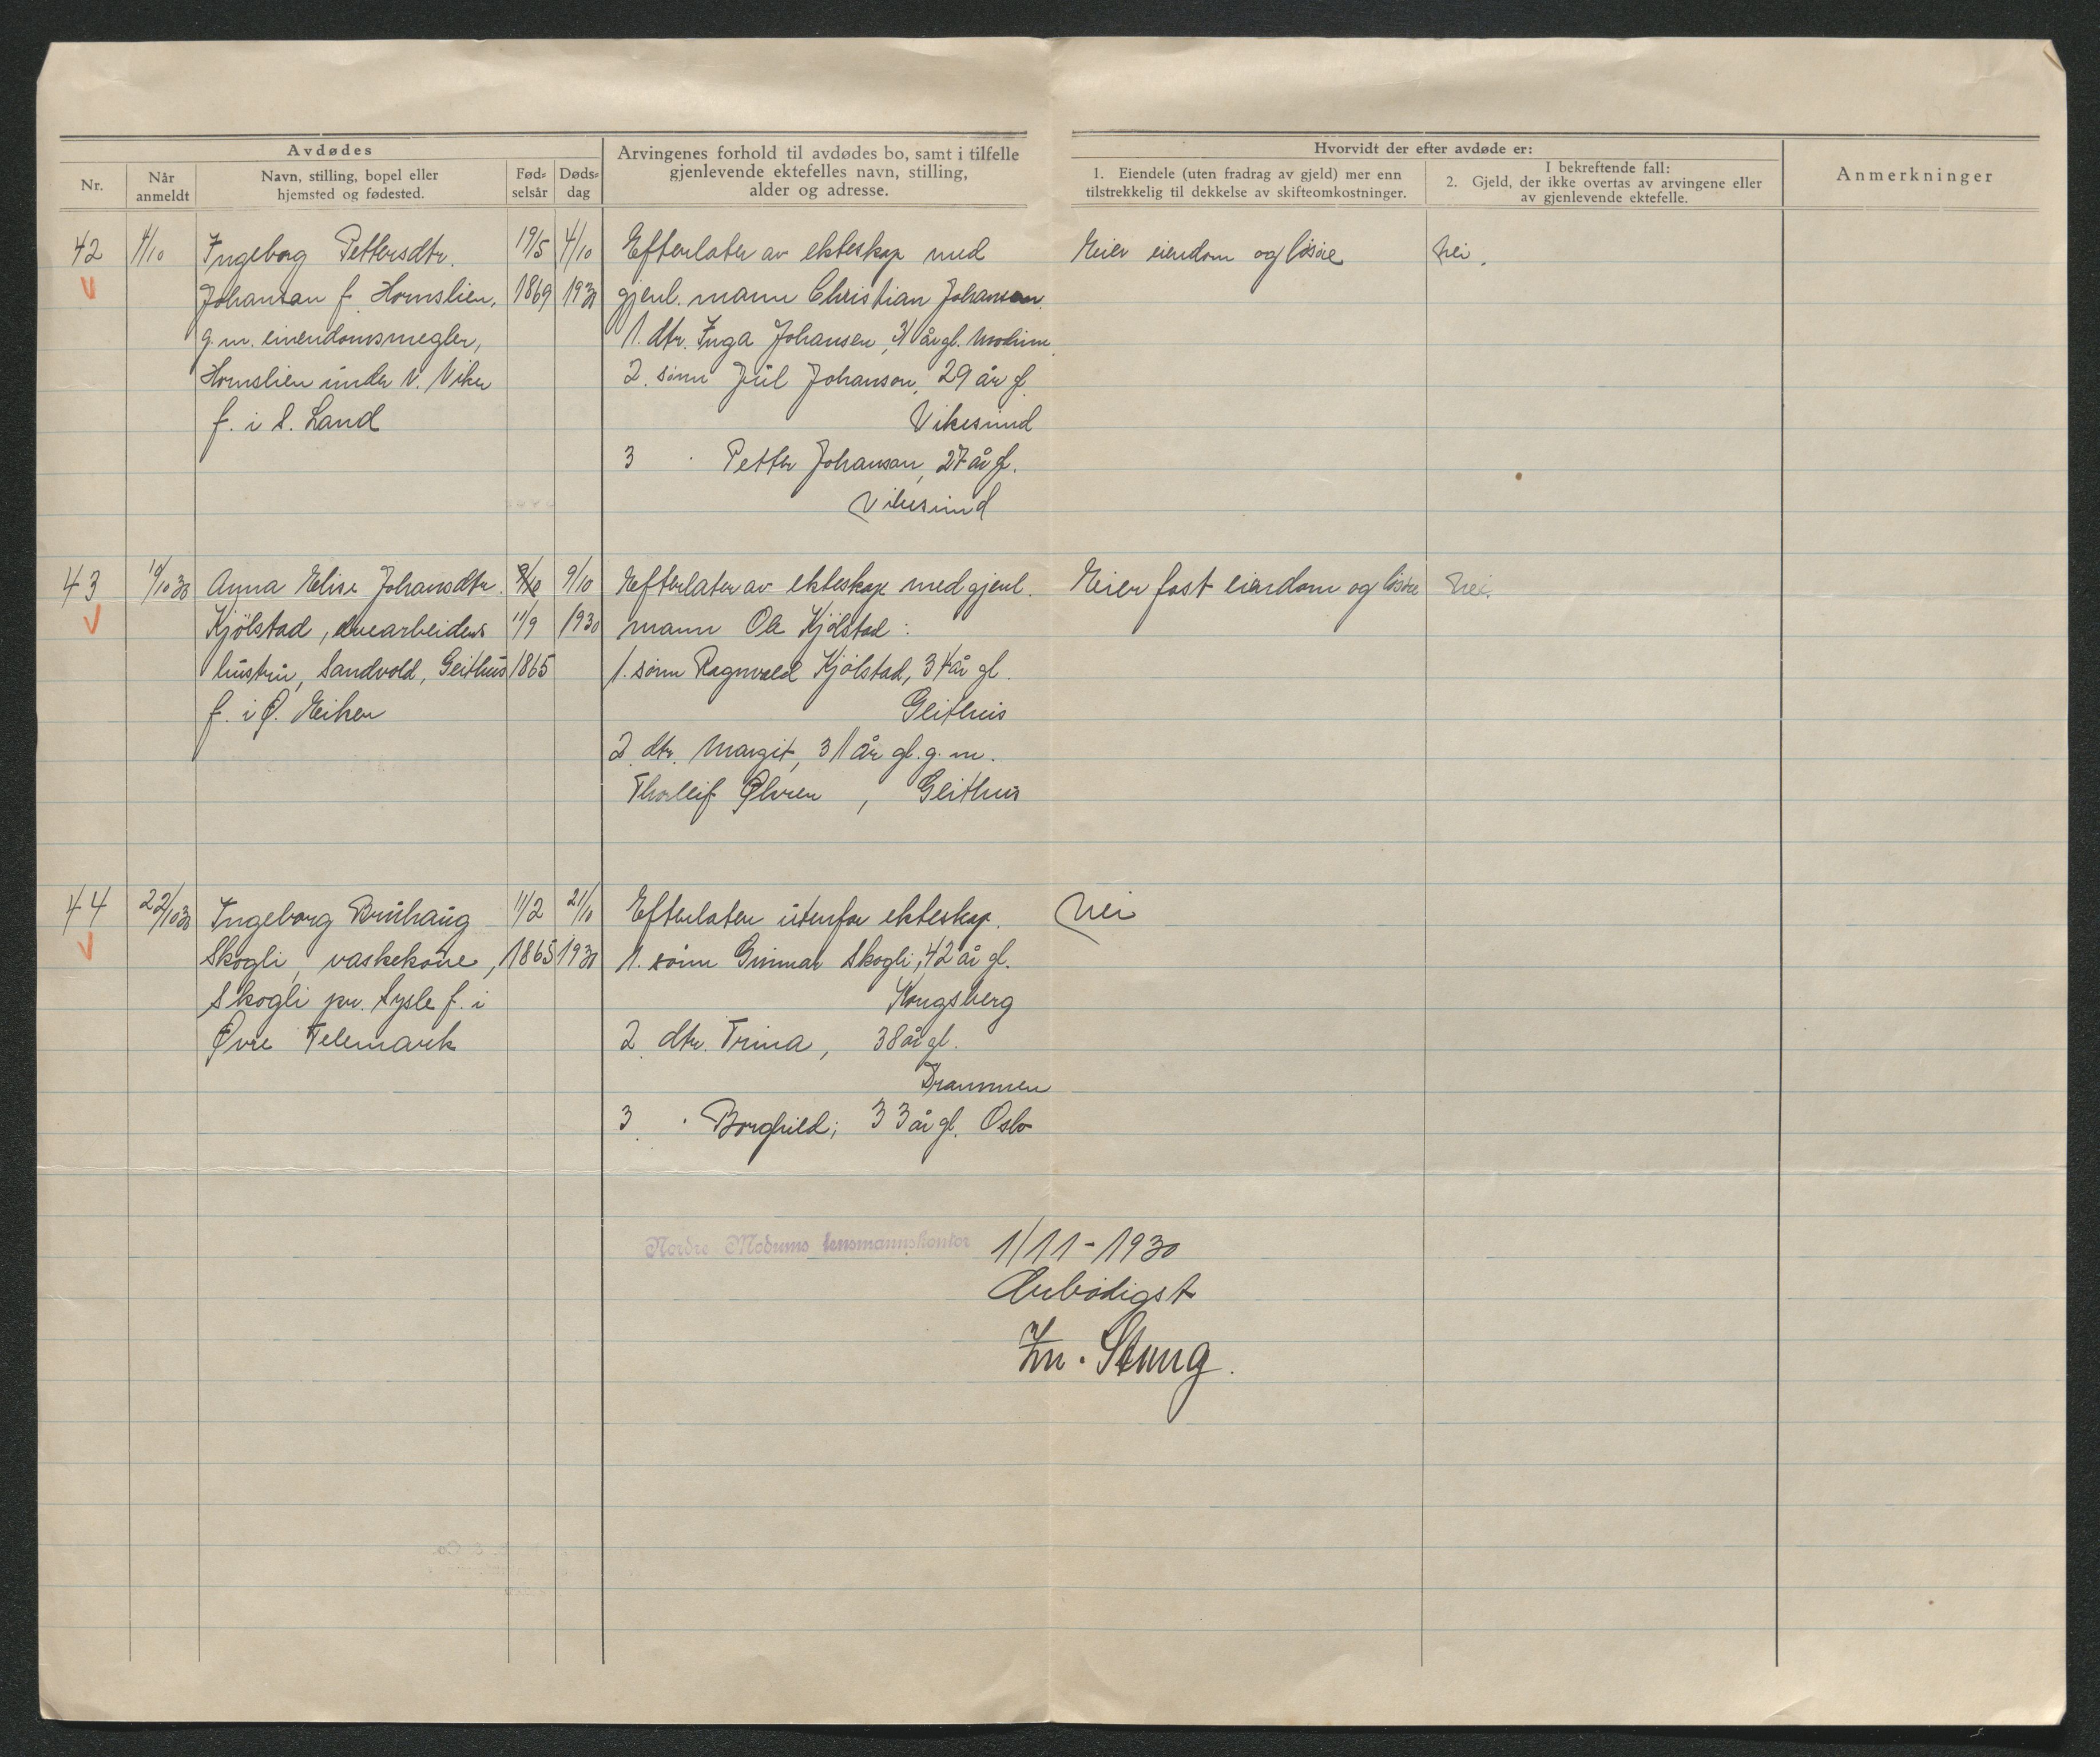 Avdødes
Arvingenes forhold til avdødes bo, samt i tilfelle
gjenlevende ektefelles navn, stilling,
alder og adresse.
Hvorvidt der efter avdøde er:
Anmerkninger
Nr.
Når
anmeldt
Navn, stilling, bopel eller
hjemsted og fødested.
Fød=
selsår
Døds=
dag
1. Eiendele (uten fradrag av gjeld) mer enn
tilstrekkelig til dekkelse av skifteomkostninger.
I bekreftende fall:
2. Gjeld, der ikke overtas av arvingene eller
av gjenlevende ektefelle.
42 4/10 Ingeborg Pettersdtr. 19/5 4/10 Efterlater av ekteskap med Eier eiendom og løsøre nei.
Johansan f. Hornslien, 1869 1930 gjenl. mann Christian Johansen.
g.m. eiendomsmegler, 1. dtr. Inga Johansen, 31 år gl. Modum.
Hornslien under V. Viker 2. sønn Jul Johanson, 29 år gl.
f. i S. Land Vikesund
3 " Petter Johanson, 27 år gl.
Vikesund
43 10/10 30 Anna Elise Johansdtr. 9/10 9/10 Efterlater av ekteskap med gjenl. Eier fast eiendom og løsøre nei.
Kjölstad, arbeiders 11/9 1930 mann Ole Kjölstad:
hustru, Sandvold, Geithus 1865 1. sønn Ragnvald Kjölstad, 34 år gl.
f. i Ø. Eiker Geithus
2. dtr. Margit, 31 år gl. g. m.
Thorleif Ølvren, Geithus
44 22/10 30 Ingeborg Bruhaug 11/2 21/10 Efterlater utenfor ekteskap. Nei
Skogli, vaskekone, 1865 1930 1. sønn Gunnar Skogli, 42 år gl.
Skogli pr. Sysle f. i Kongsberg
Øvre Telemark 2. dtr. Trina, 38 år gl.
Drammen
3. " Borghild; 33 år gl. Oslo
Nordre Modums lensmannskontor 1/11-1930
Ærbødigst